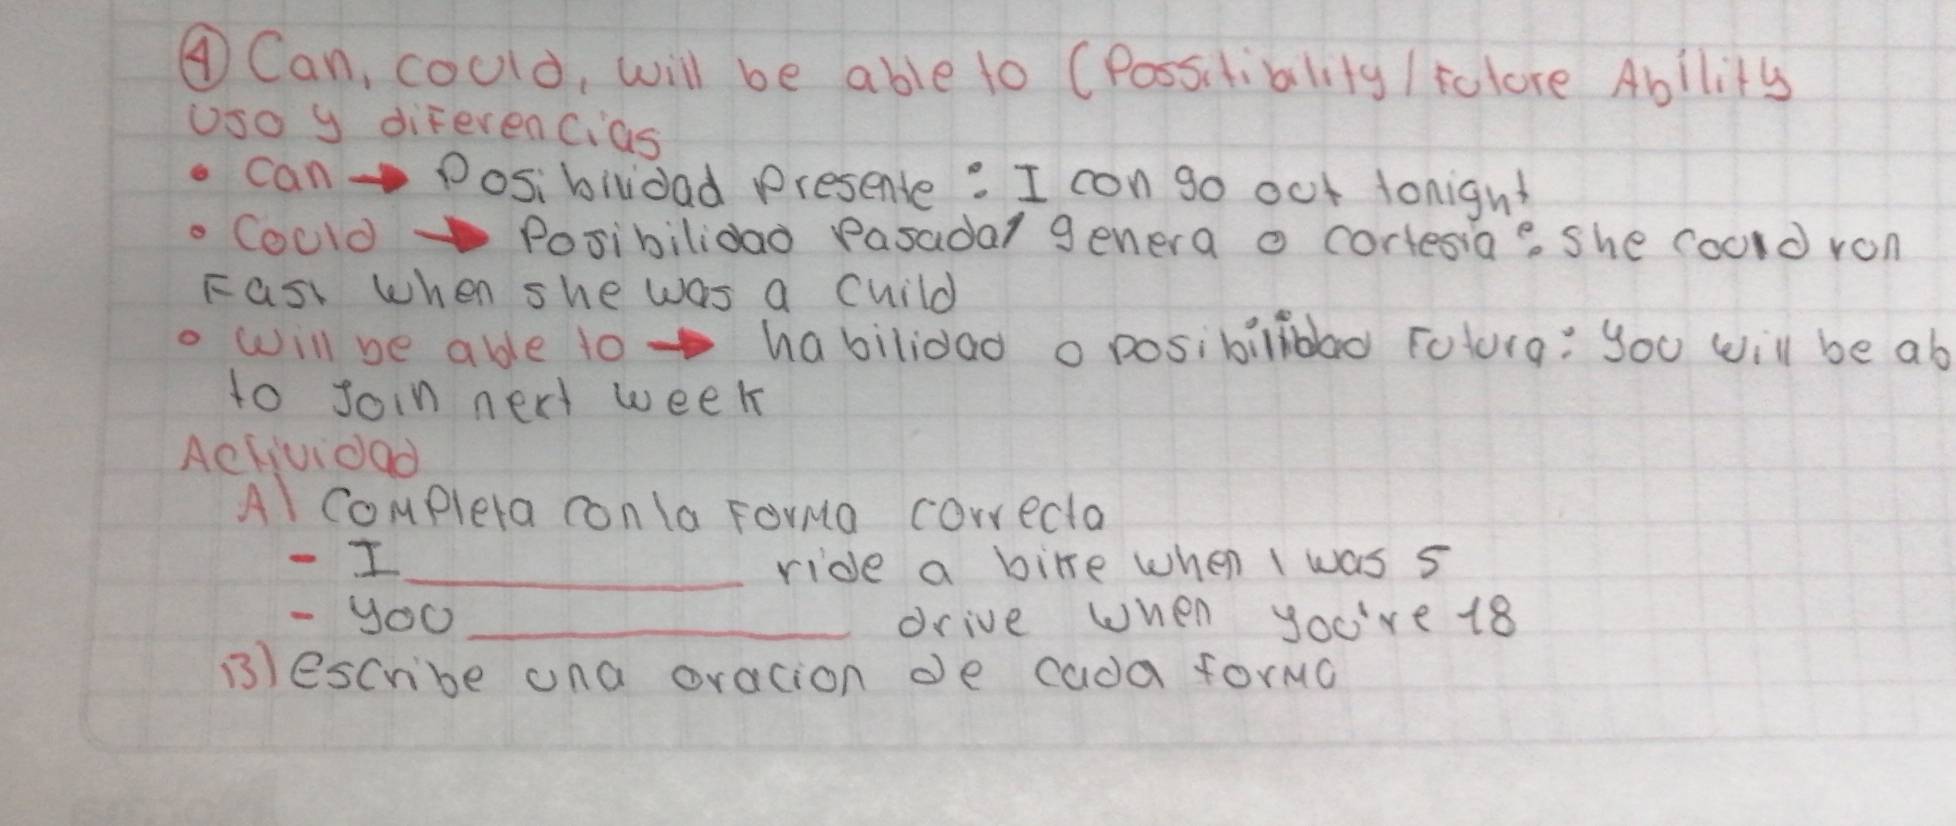 ④ Can, could, will be able to (Possitibility / Future Ability
Uso y diferencias
• Can → Posibilidad presente: I can go out tonight
• Could → Posibilidad Pasada/ genera o cortesia: she could run
Fast when she was a child
• Will be able to → habilidad o posibilidad Futura: you will be ab
to Join next week
Actividad
A) Completa con la Forma correcta
- I __________ ride a bike when I was 5
- You __________ drive when you're 18
B) escribe una oracion de cada forma